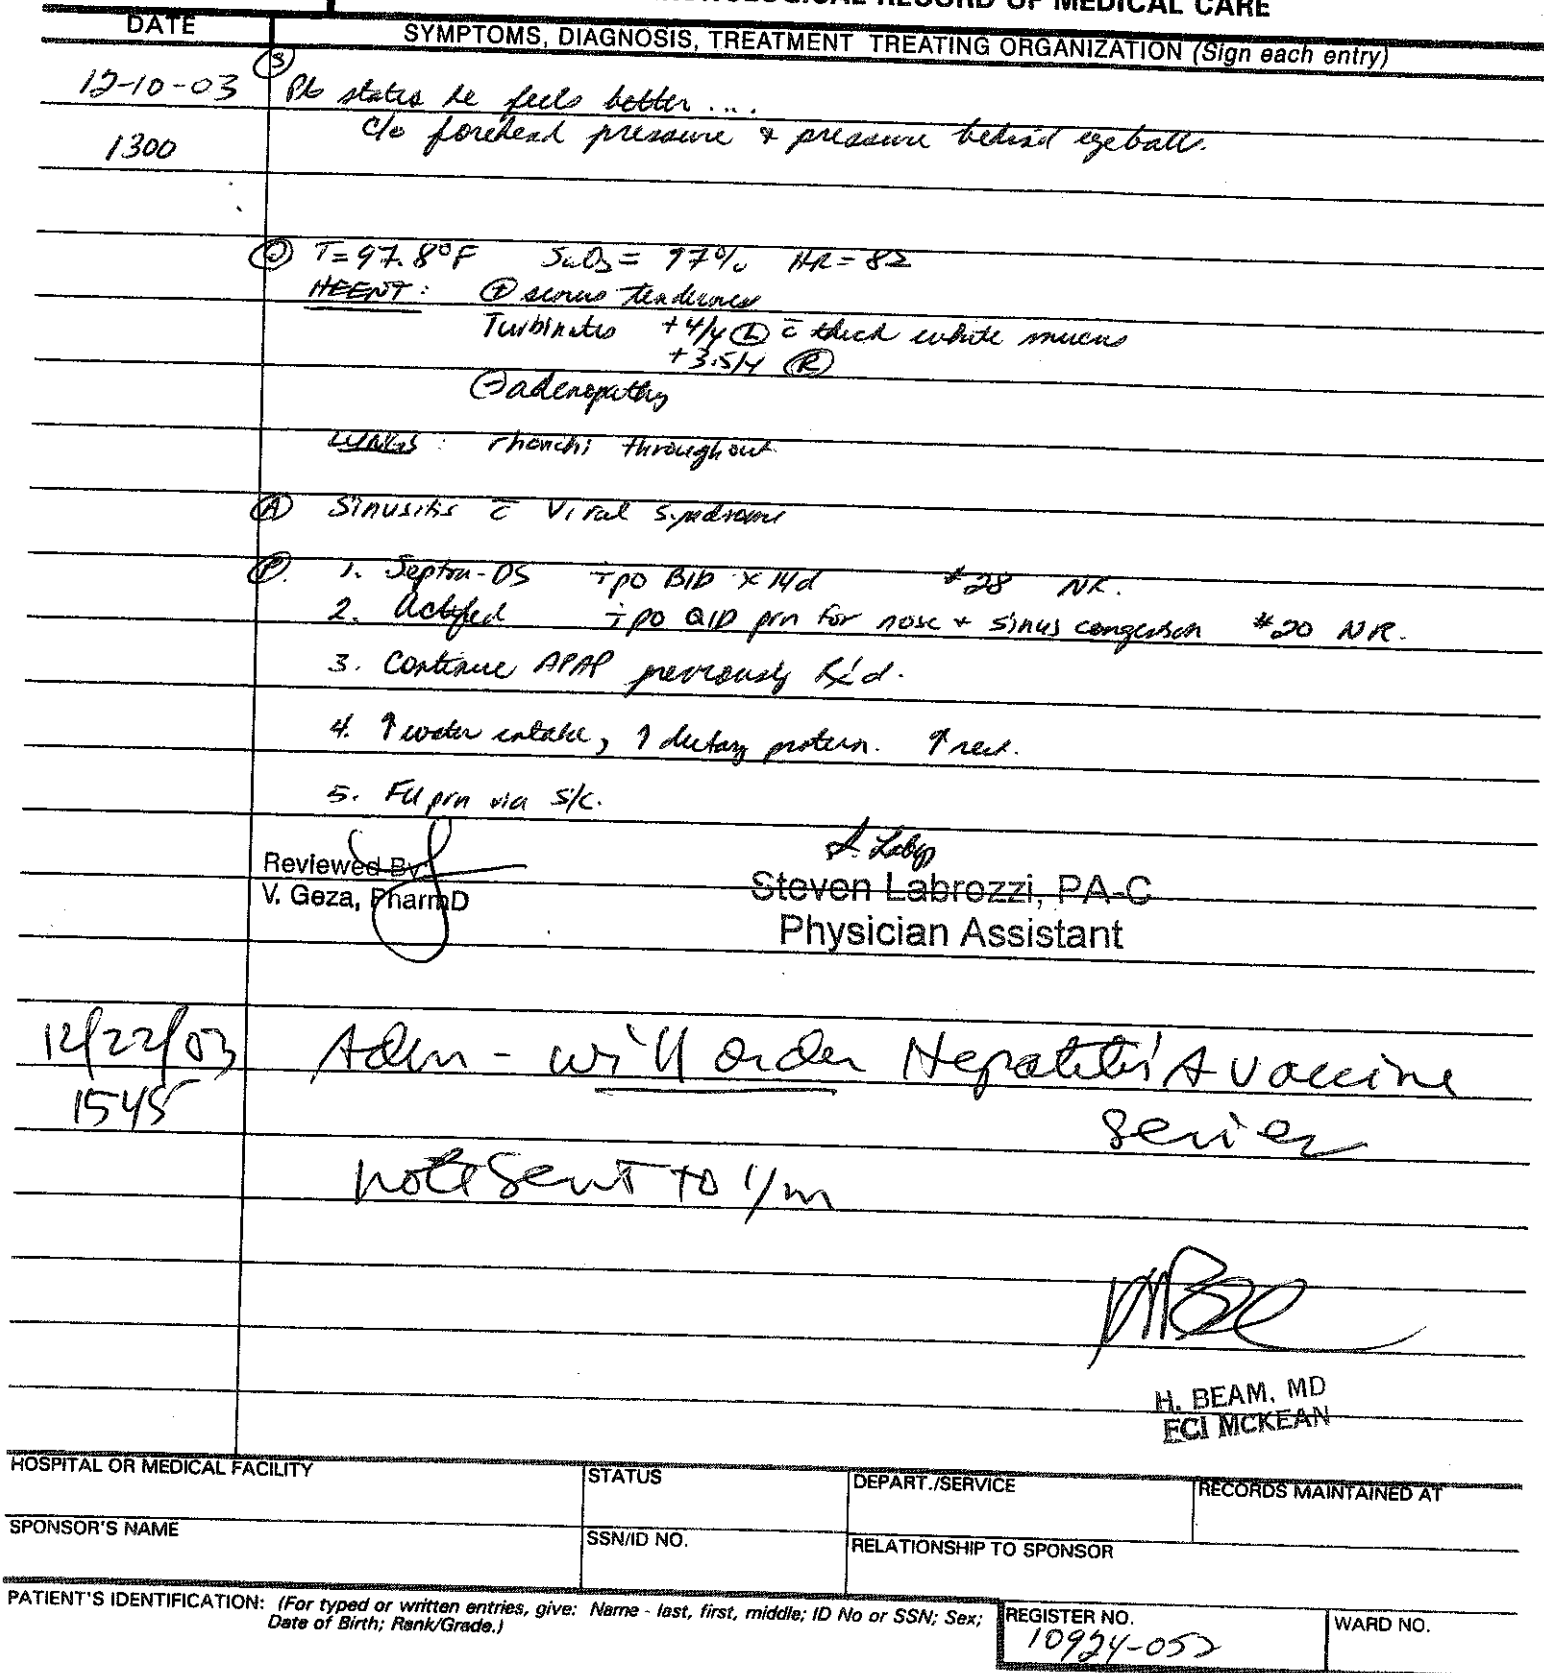 RECORD OF MEDICAL CARE
DATE
SYMPTOMS, DIAGNOSIS, TREATMENT TREATING ORGANIZATION (Sign each entry)
12-10-03
Ⓢ
Pt states he feels better ....
1300
c/o forehead pressure & pressure behind eyeball.
Ⓞ T=97.8°F SaO2 = 97% HR=82
HEENT: ⊕ sinus tenderness
Turbinates +4/4 Ⓛ c̄ thick white mucus
+3.5/4 Ⓡ
⊖ adenopathy
LUNGS: rhonchi throughout
Ⓐ Sinusitis c̄ Viral Syndrome
Ⓟ. 1. Septra-DS ṫ po BID x 14d #28 NR.
2. Actifed ṫ po QID prn for nose + sinus congestion #20 NR.
3. Continue APAP previously Rx'd.
4. ↑ water intake, ↑ dietary protein. ↑ rest.
5. FU prn via S/C.
Reviewed By
V. Geza, PharmD
Steven Labrozzi, PA-C
Physician Assistant
12/22/03
Adm - will order Hepatitis A vaccine
1545
series
note sent to i/m
H. BEAM, MD
FCI MCKEAN
HOSPITAL OR MEDICAL FACILITY
STATUS
DEPART./SERVICE
RECORDS MAINTAINED AT
SPONSOR'S NAME
SSN/ID NO.
RELATIONSHIP TO SPONSOR
PATIENT'S IDENTIFICATION: (For typed or written entries, give: Name - last, first, middle; ID No or SSN; Sex;
Date of Birth; Rank/Grade.)
REGISTER NO.
10924-052
WARD NO.